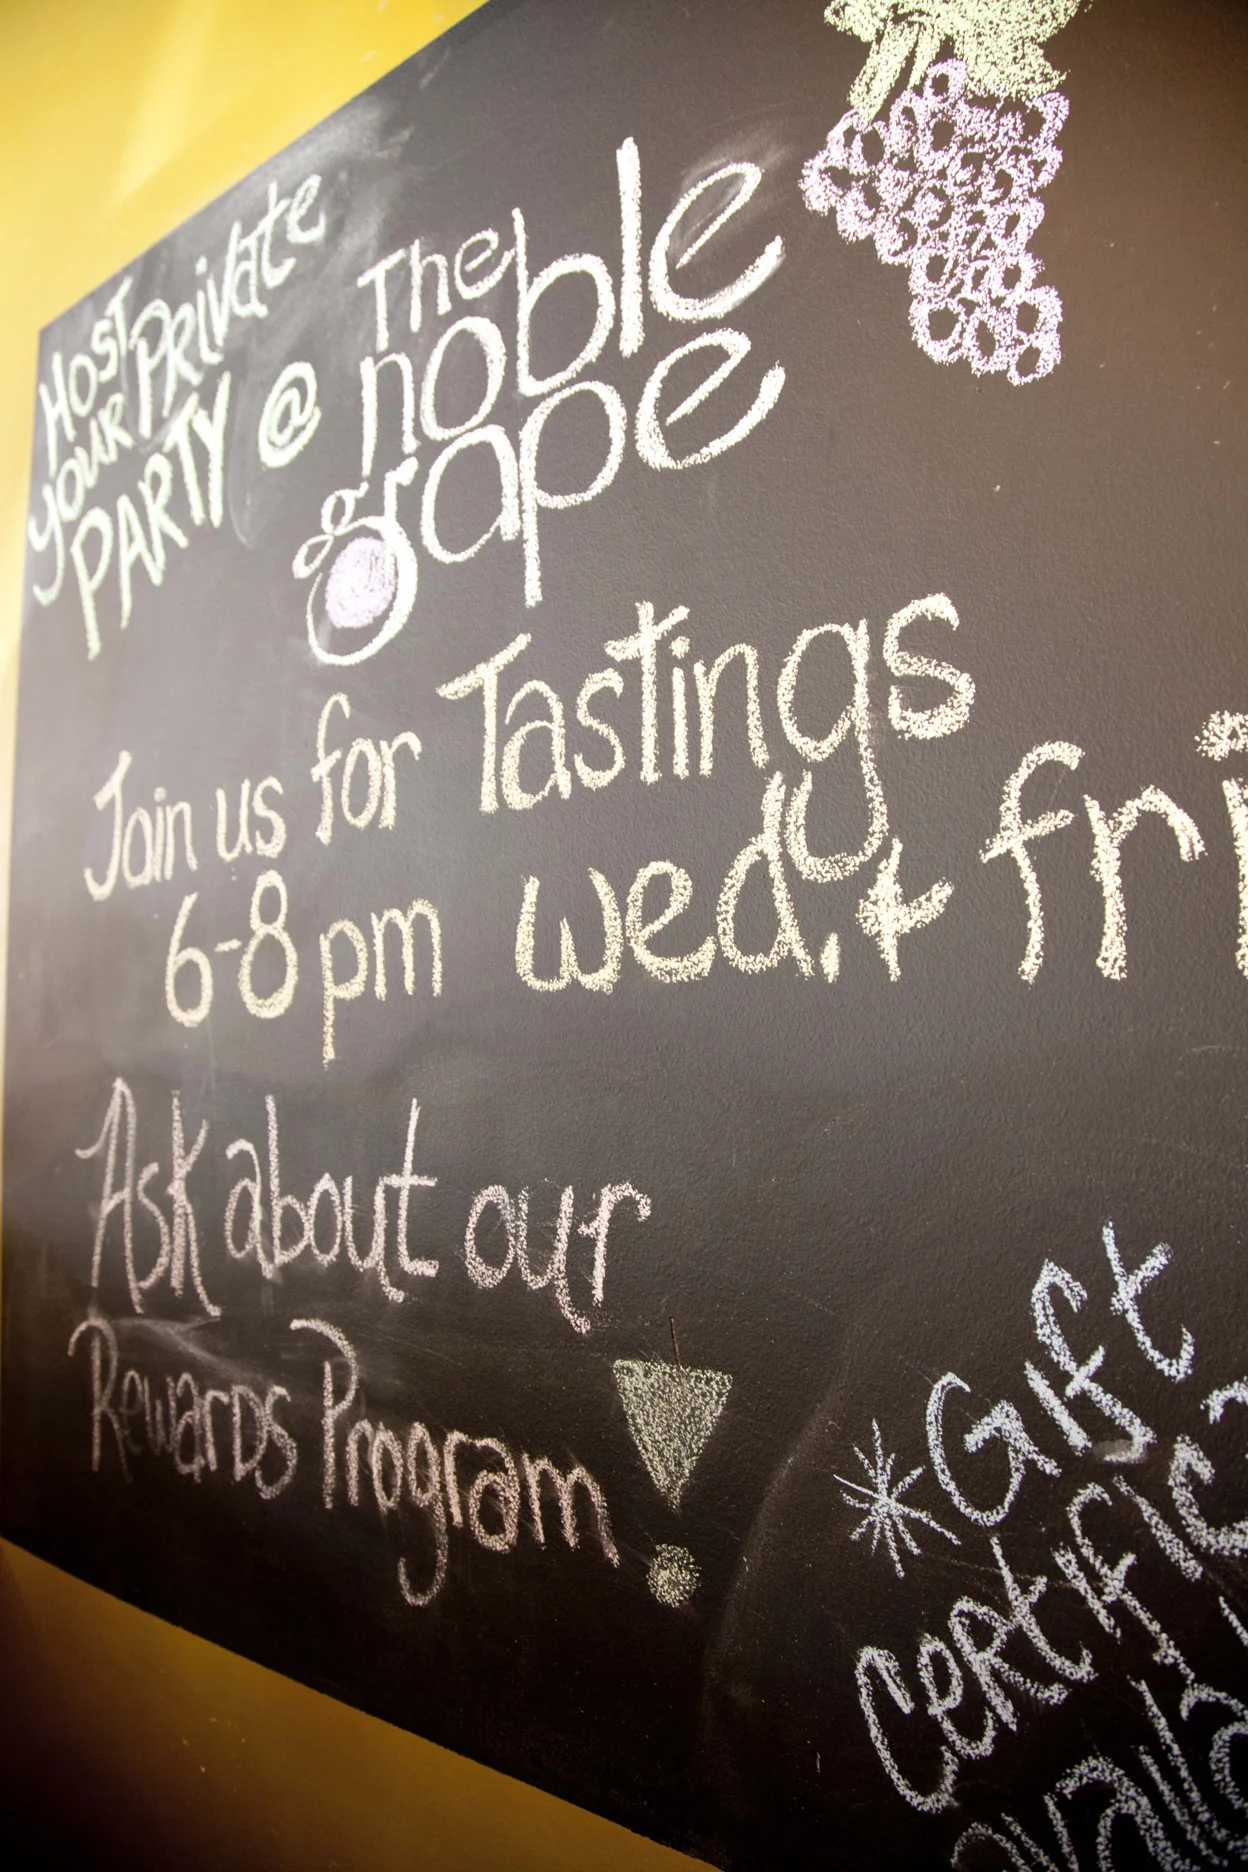 HOST
YOUR PRIVATE
PARTY @
The
noble
grape
Join us for Tastings
6-8pm wed. & fri
Ask about our
Rewards Program!
*Gift